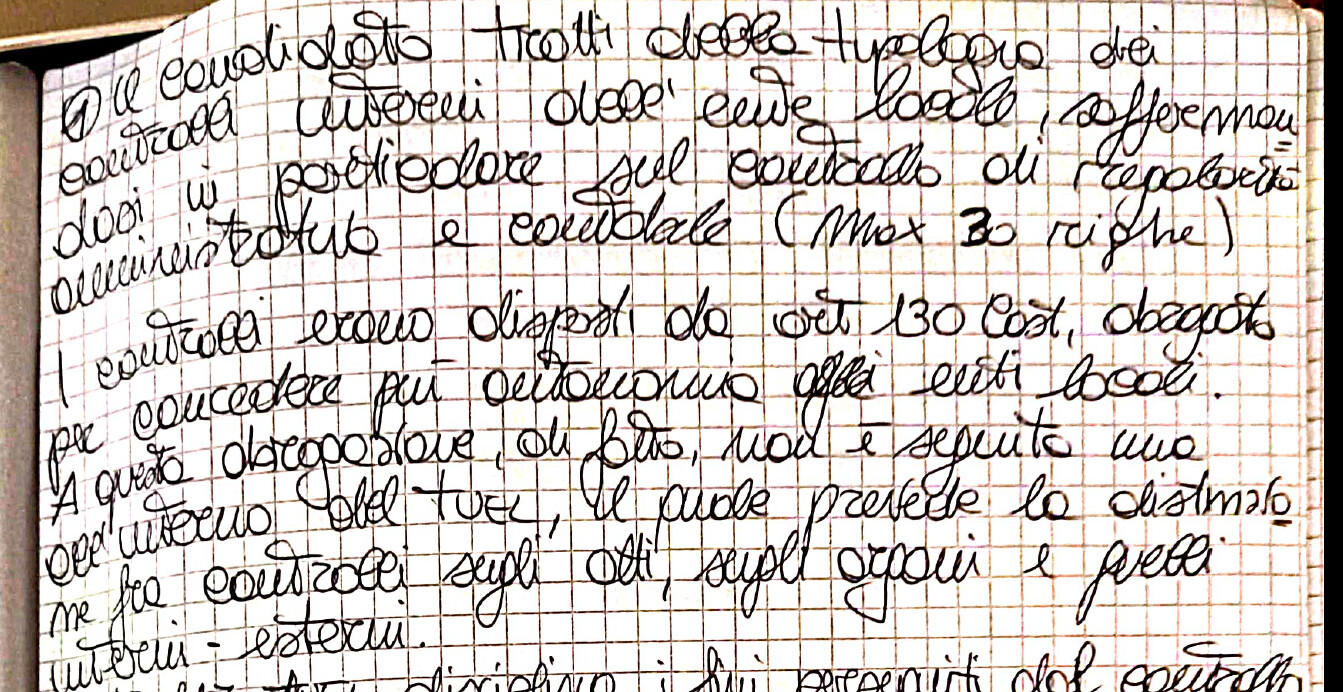 ① Il candidato tratti della tipologia dei
controlli interni dell'ente locale, sofferman=
dosi in particolare sul controllo di regolarità
amministrativo e contabile (Max 30 righe)
I controlli erano disposti da art 130 Cost, abrogato
per concedere più autonomia agli enti locali.
A questa abrogazione, di fatto, non è seguita una
all'interno del TUEL, il quale prevede la distinzio
ne fra controlli sugli atti, sugli organi e quelli
interni - esterni.
disciplina i fini perseguiti dal controllo